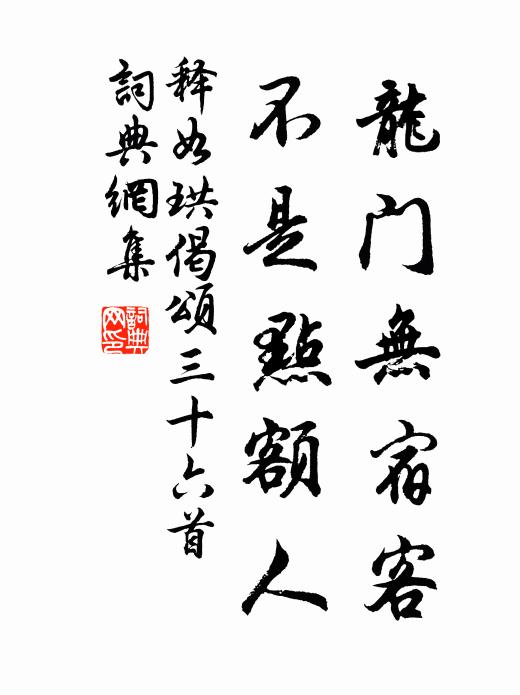 龍門無宿客
不是點額人
释如珙偈頌三十六首
詞典網集
詞典网印